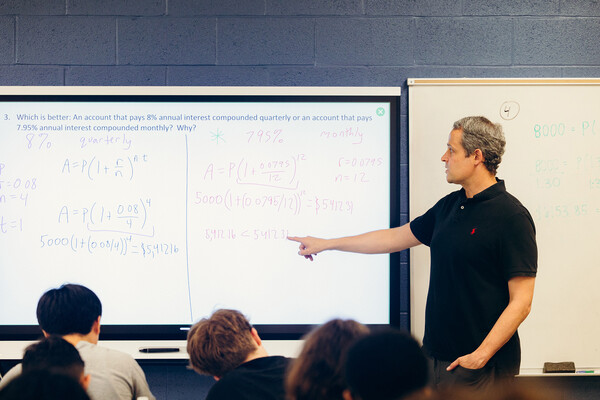 3. Which is better: An account that pays 8% annual interest compounded quarterly or an account that pays
7.95% annual interest compounded monthly? Why?
8% quarterly
A = P(1 + r/n)^nt
= 0.08
n = 4
t = 1
A = P(1 + 0.08/4)^4
5000(1+(0.08/4))^4 = $5,412.16
7.95% monthly
A = P(1 + 0.0795/12)^12
r = 0.0795
n = 12
5000(1+(0.0795/12))
= $5412.39
<
4
8000 = P(